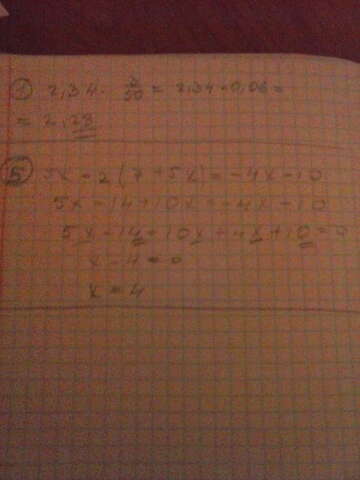 ① 2,34 - 3/50 = 2,34 - 0,06 =
= 2,28
⑤ 5x - 2(7+5x) = -4x - 10
5x - 14 + 10x = -4x - 10
5x - 14 - 10x + 4x + 10 = 0
x - 4 = 0
x = 4